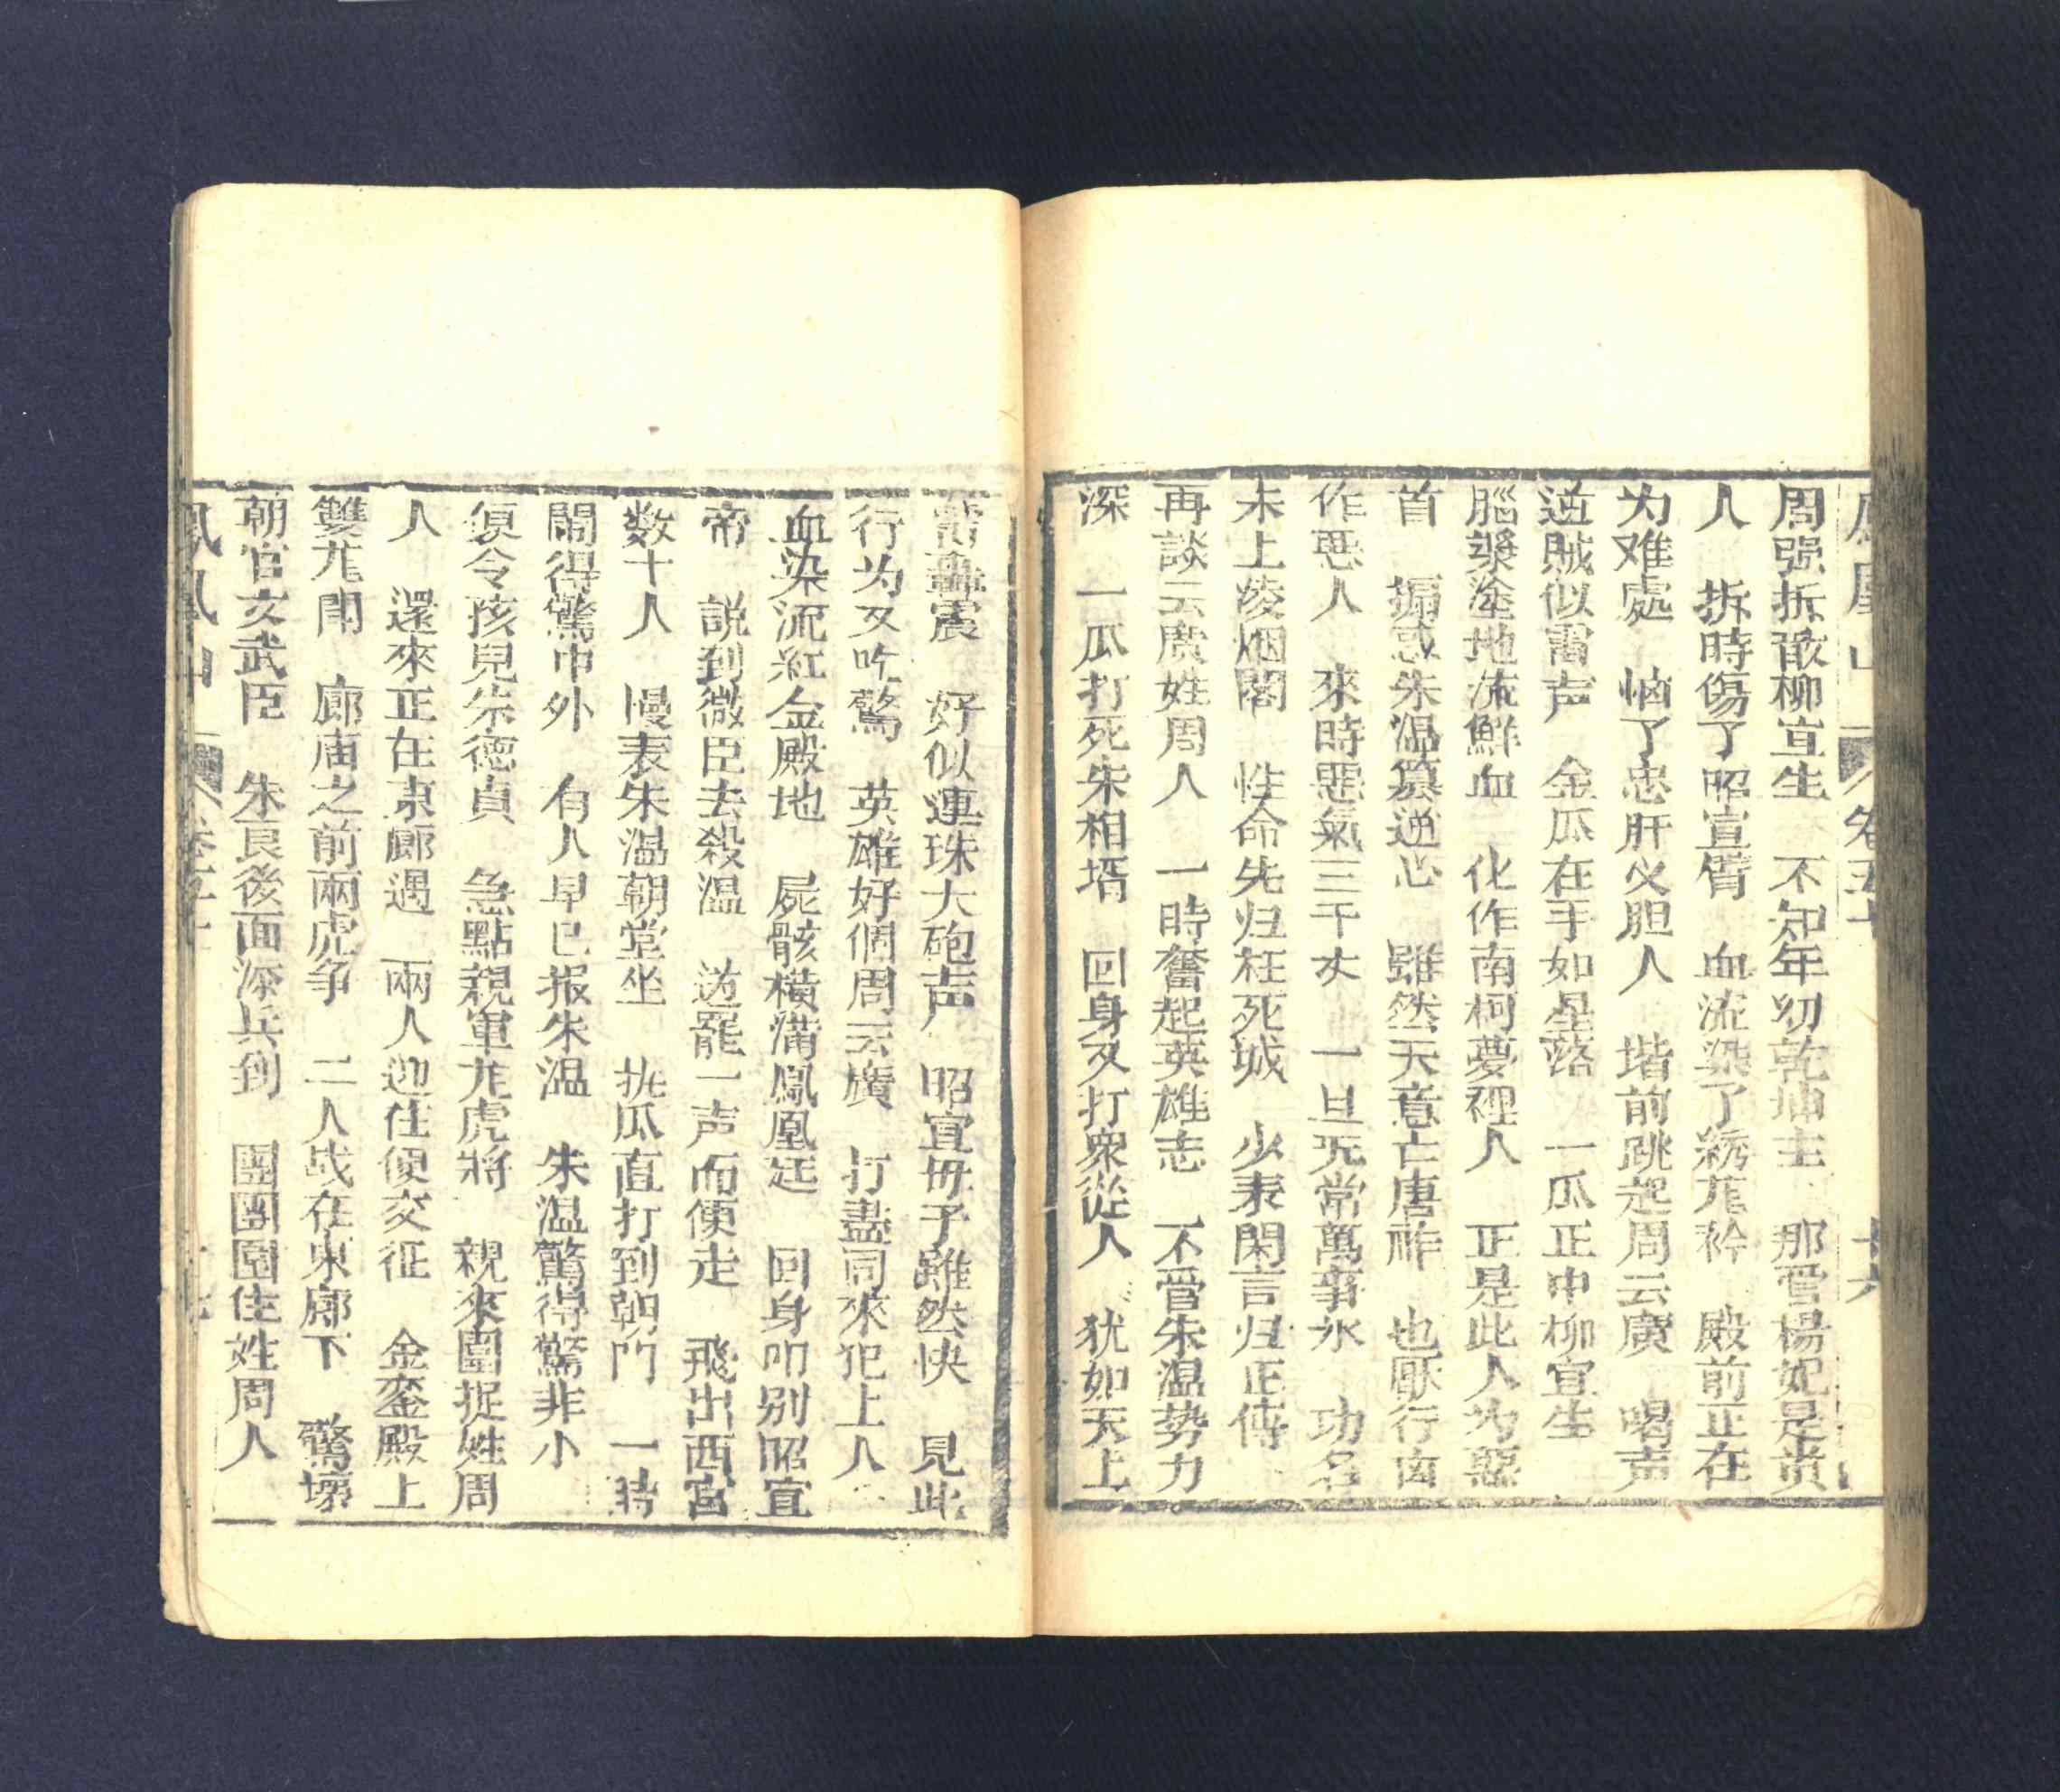 周强拆散柳宣生　不知年幼乾坤主　那管楊妃是贵
人　拆時傷了昭宣臂　血流染了綉龙衿　殿前正在
为难處　恼了忠肝义胆人　堦前跳起周云廣　喝声
逆賊似雷声　金瓜在手如星落　一瓜正中柳宣生
腦漿塗地流鮮血　化作南柯夢裡人　正是此人为惡
首　搧惑朱温篡逆心　雖然天意亡唐祚　也厭行凶
作恶人　來時悪氣三千丈　一旦无常萬事氷　功名
未上凌烟閣　性命先归枉死城　少表閑言归正傳
再談云廣姓周人　一時奮起英雄志　不管朱温势力
深　一瓜打死朱相壻　回身又打衆從人　犹如天上
雷轟震　好似連珠大砲声　昭宣毋子雖然快　見此
行为又吃驚　英雄好個周云廣　打盡同來犯上人
血染流紅金殿地　屍骸横满鳳凰廷　回身叩别昭宣
帝　説到微臣去殺温　道罷一声而便走　飛出西宮
数十人　慢表朱温朝堂坐　执瓜直打到朝门　一時
閙得驚巾外　有人早已报朱温　朱温驚得驚非小
便令孩兒朱德貞　急點親軍龙虎將　親來圍捉姓周
人　還來正在東廊遇　兩人迎住便交征　金銮殿上
雙龙閙　廊庙之前兩虎争　二人战在東廊下　驚壊
朝官文武臣　朱良後面添兵到　團團圍住姓周人
鳳凰山　卷五十